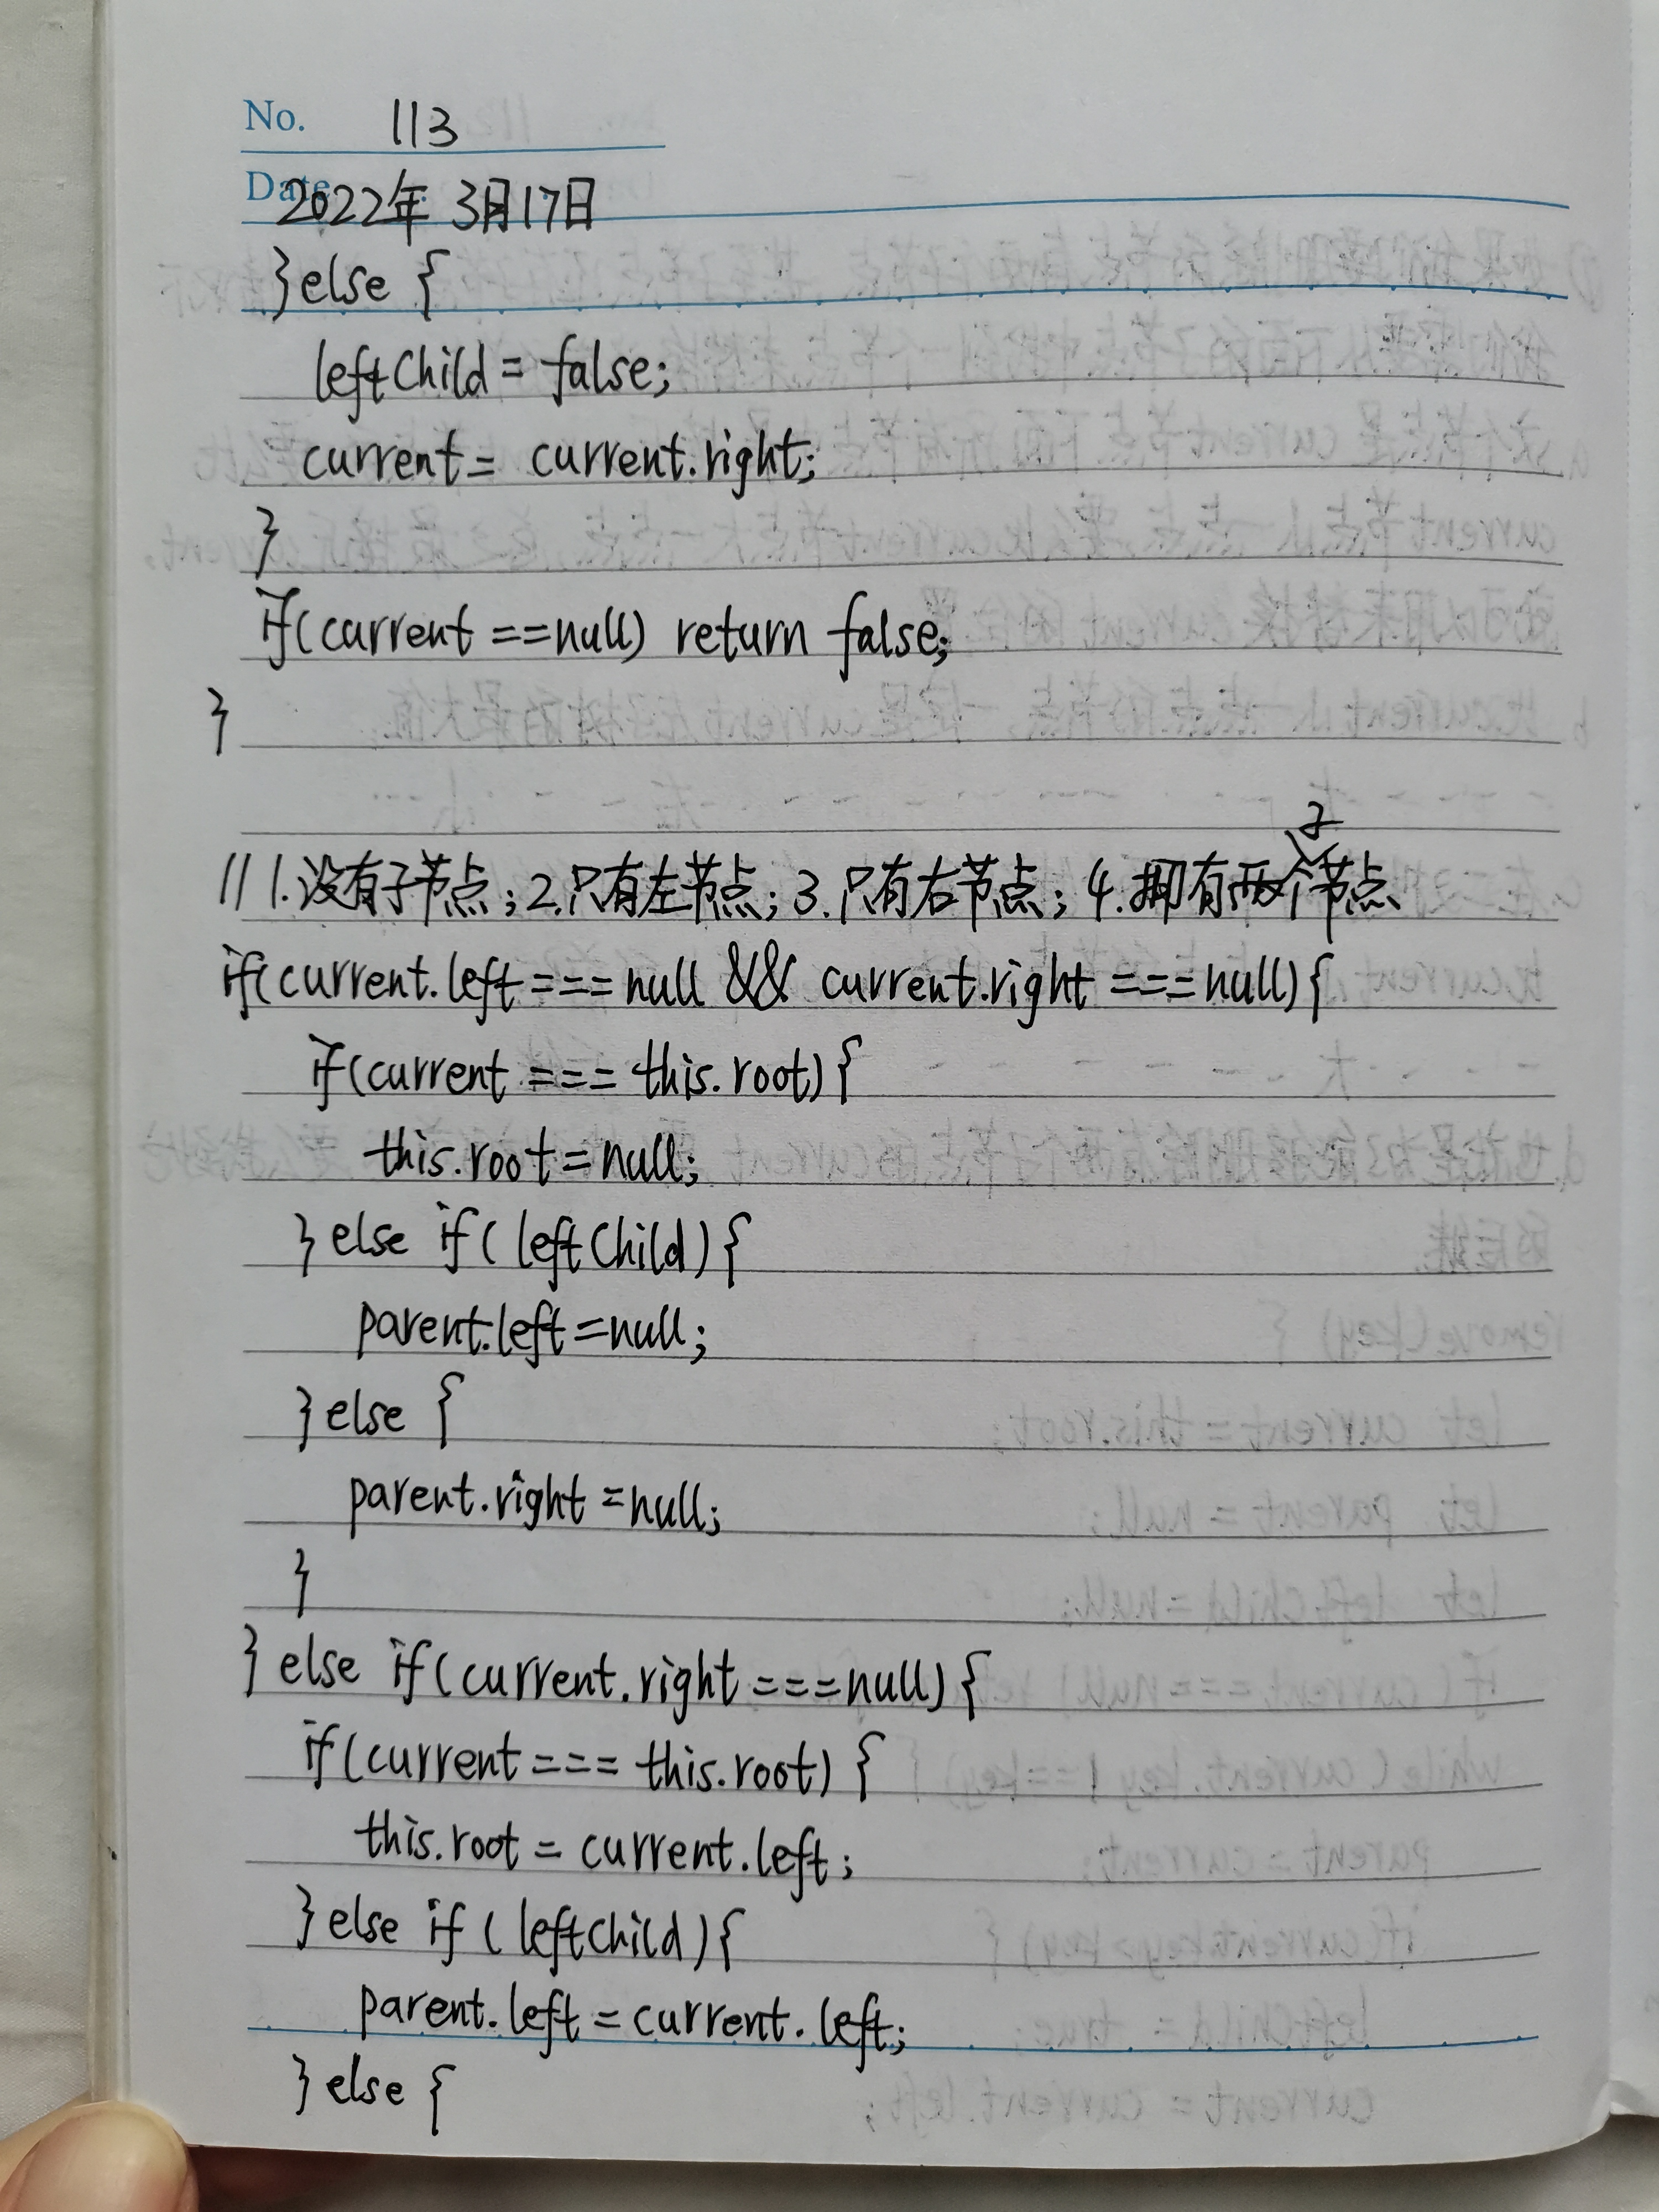 No. 113
Date 2022年 3月17日
}else {
leftChild = false;
current = current.right;
}
if(current ==null) return false;
}
// 1.没有子节点; 2.只有左节点; 3.只有右节点; 4.拥有两个子节点
if(current.left === null && current.right === null){
if(current === this.root){
this.root = null;
} else if( leftChild){
parent.left = null;
} else {
parent.right = null;
}
} else if(current.right === null){
if(current === this.root) {
this.root = current.left;
} else if ( leftChild){
parent.left = current.left;
} else {